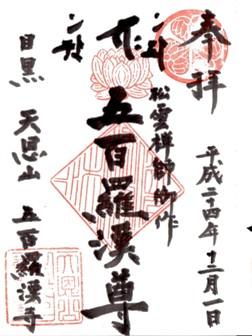 奉拝
平成二十四年十二月一日
松雲禅師御作
五百羅漢尊
目黒 天恩山 五百羅漢寺